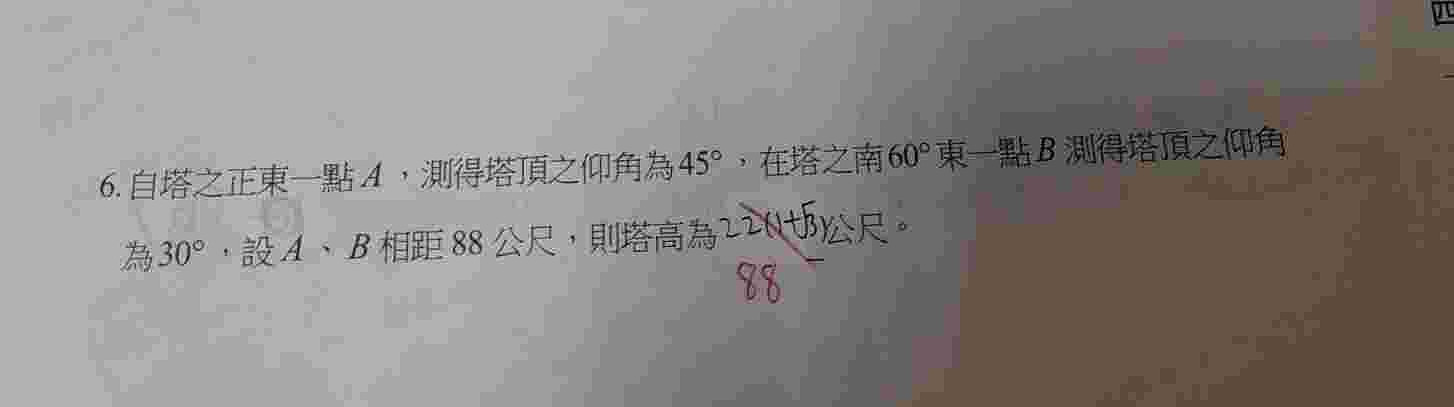 四
6. 自塔之正東一點A，測得塔頂之仰角為45°，在塔之南60°東一點B測得塔頂之仰角
為30°，設A、B相距88公尺，則塔高為22(1+√3)公尺。
88